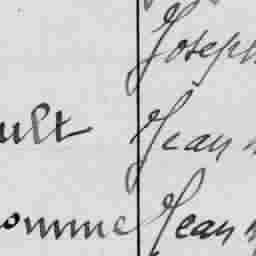 Joseph
ult Jean
omme Jean